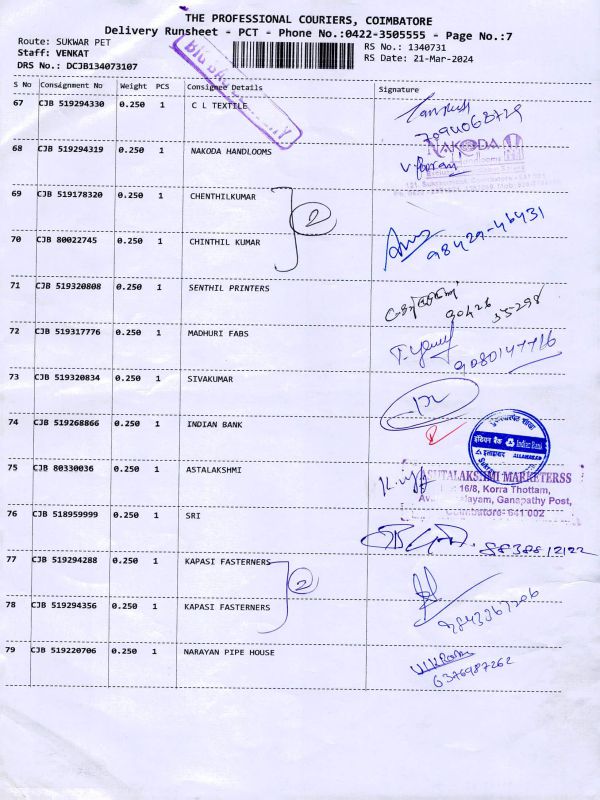 THE PROFESSIONAL COURIERS, COIMBATORE
Delivery Runsheet - PCT - Phone No.:0422-3505555 - Page No.:7
Route: SUKWAR PET
RS No.: 1340731
Staff: VENKAT
RS Date: 21-Mar-2024
DRS No.: DCJB134073107
S No Consignment No Weight PCS Consignee Details Signature
67 CJB 519294330 0.250 1 C L TEXTILE
68 CJB 519294319 0.250 1 NAKODA HANDLOOMS
NAKODA
Handlooms
69 CJB 519178320 0.250 1 CHENTHILKUMAR
2
70 CJB 80022745 0.250 1 CHINTHIL KUMAR
98429-46431
71 CJB 519320808 0.250 1 SENTHIL PRINTERS
90426 55298
72 CJB 519317776 0.250 1 MADHURI FABS
9080147716
73 CJB 519320834 0.250 1 SIVAKUMAR
74 CJB 519268866 0.250 1 INDIAN BANK
इंडियन बैंक Indian Bank
इलाहाबाद ALLAHABAD
75 CJB 80330036 0.250 1 ASTALAKSHMI
SHTALAKSHMI MARKETERSS
16/8, Korra Thottam,
Ganapathy Post,
Coimbatore- 641 002
76 CJB 518959999 0.250 1 SRI
77 CJB 519294288 0.250 1 KAPASI FASTERNERS
2
78 CJB 519294356 0.250 1 KAPASI FASTERNERS
79 CJB 519220706 0.250 1 NARAYAN PIPE HOUSE
6376987262